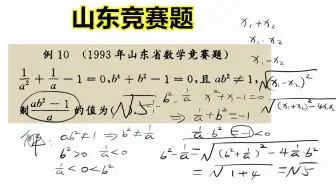 山东竞赛题
例 10 (1993年山东省数学竞赛题)
1/a² + 1/a - 1 = 0, b⁴ + b² - 1 = 0, 且 ab² ≠ 1,
则 (ab² - 1)/a 的值为(√5
x₁+x₂
x₁-x₂
√(x₁-x₂)²
√(x₁+x₂)²-4x₁x₂
b², 1/a, x²+x-1=0
⇒ 1/a + b² = -1
1/a · b² = -1 < 0
解: ab² ≠ 1 ⇒ b² ≠ 1/a
b² > 0, 1/a < 0
1/a < 0 < b²
b² - 1/a = √(b² + 1/a)² - 4 1/a · b²
= √1+4 = √5